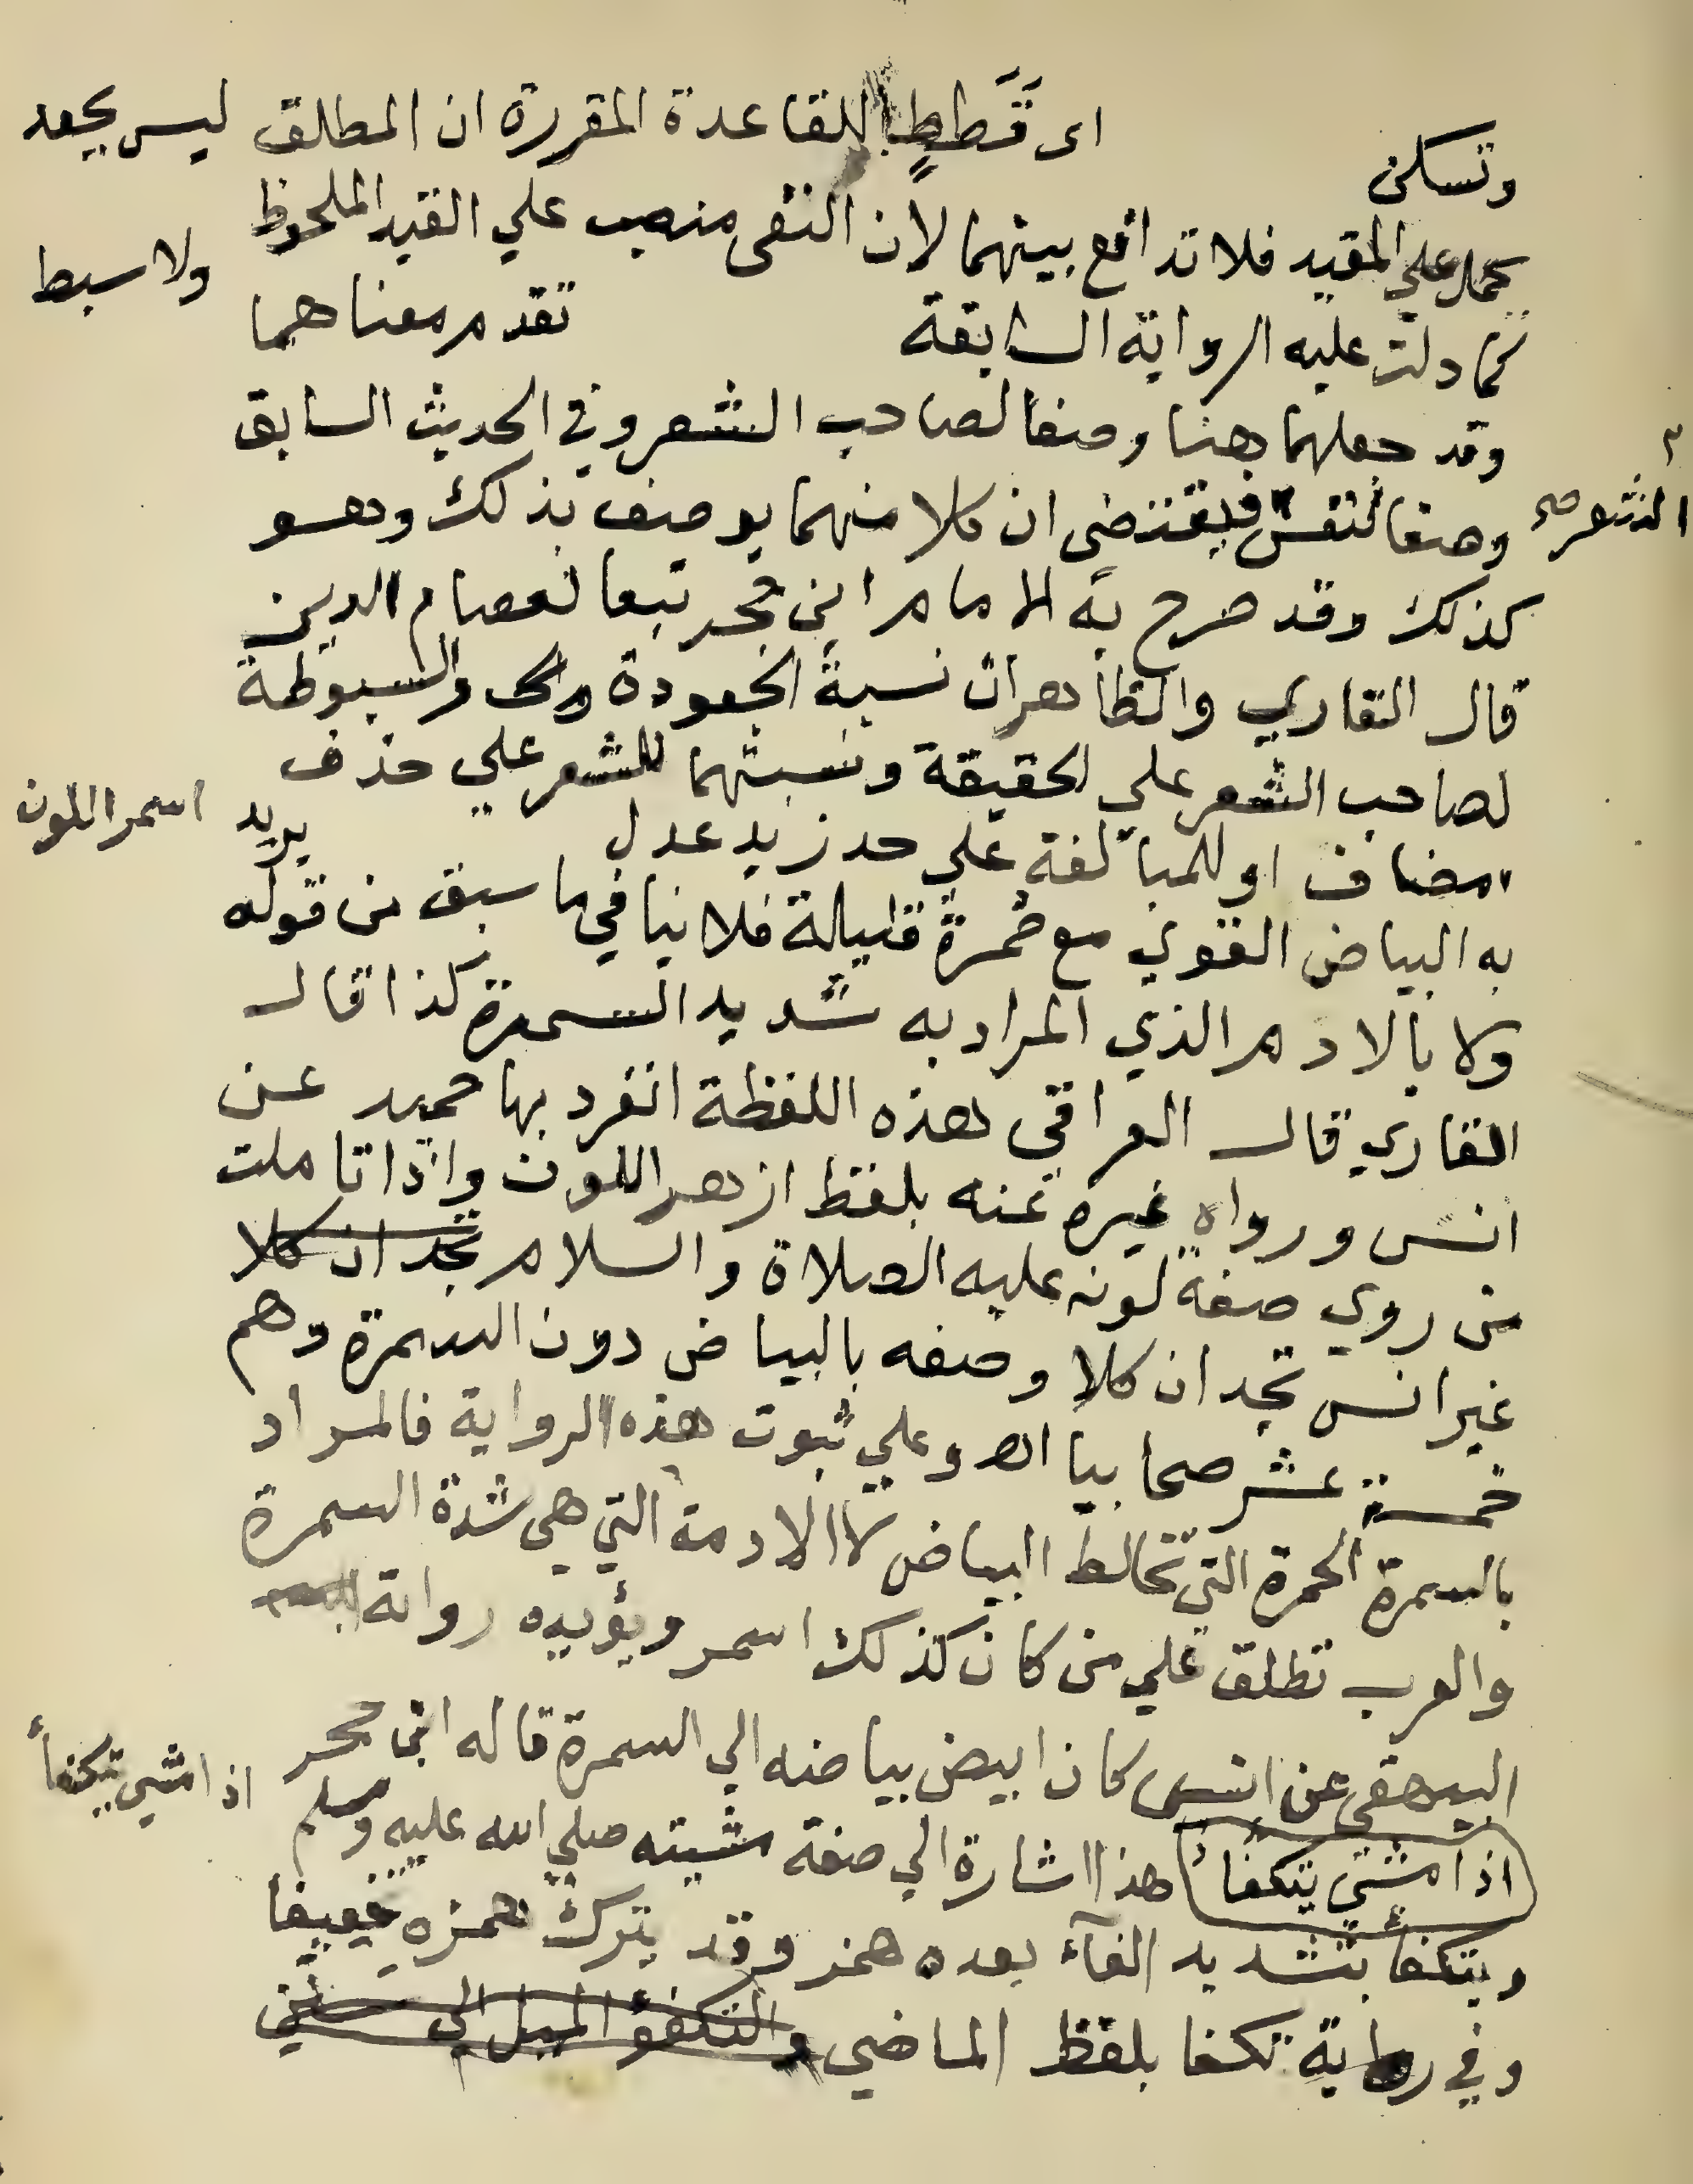 وتسكن اى قَطَطٍ للقاعدة المقررة ان المطلق ليس بجعد
يحمل علي المقيد فلا تدافع بينهما لان النفى منصب علي القيد الملحوظ
كما دلت عليه الرواية السابقة تقدم معناهما ولا سبط
وقد جعلهما هنا وصفا لصاحب الشعر وفي الحديث السابق
وصفا لنفس فيقتضى ان كلا منهما يوصف بذلك وهو
الشعر صح
كذلك وقد صرح به الامام ابن حجر تبعا لعصام الدين
قال القاري والظاهر ان نسبة الجعودة والسبوطة
لصاحب الشعر علي الحقيقة ونسبتهما للشعر علي حذف
مضاف او للمبالغة علي حد زيد عدل يريد اسمر اللون
به البياض القوي مع حُمرة قليلة فلا ينافي ما سبق من قوله
ولا بالادم الذي المراد به شديد السمرة كذا قال
القاري قال العراقي هذه اللفظة انفرد بها حميد عن
انس ورواه غيره عنه بلفظ ازهر اللون واذا تاملت
من روي صفة لونه عليه الصلاة والسلام تجد ان كلا
غير انس تجد ان كلا وصفه بالبياض دون السمرة وهم
خمسة عشر صحابيا اهـ وعلي ثبوت هذه الرواية فالمراد
بالسمرة الحمرة التي تخالط البياض لا الادمة التي هي شدة السمرة
والعرب تطلق علي من كان كذلك اسمر ويؤيده رواية
البيهقي عن انس كان ابيض بياضه الي السمرة قاله ابن حجر
اذا مشي يتكفأ
اذا مشي يتكفأ هذا اشارة الي صفة مشيته صلي الله عليه وسلم
ويتكفأ بتشديد الفآء بعده همز وقد يترك همزه تخفيفا
وفي رواية تكفا بلفظ الماضي والتكفؤ الميل الي سنن